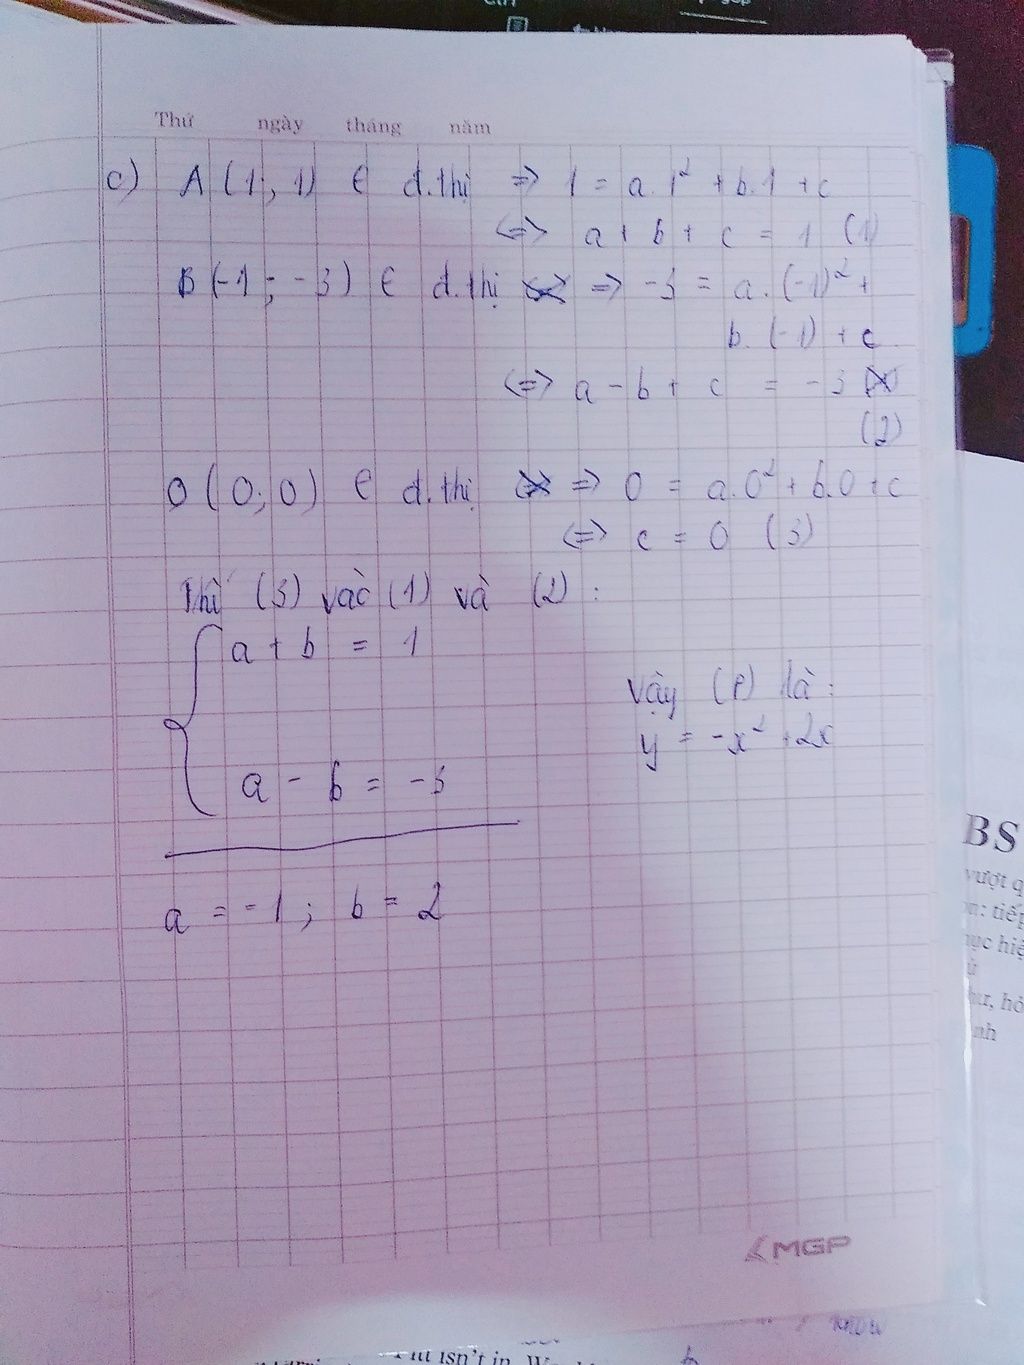 Thứ ngày tháng năm
c) A (1; 1) ∈ đ.thị => 1 = a.1² + b.1 + c
<=> a + b + c = 1 (1)
B (-1; -3) ∈ đ.thị => -3 = a.(-1)² +
b.(-1) + c
<=> a - b + c = -3
(2)
O (0; 0) ∈ đ.thị => 0 = a.0² + b.0 + c
<=> c = 0 (3)
Thế (3) vào (1) và (2) :
{ a + b = 1
a - b = -3
Vậy (P) là :
y = -x² + 2x
a = -1 ; b = 2
MGP
BS
vượt q
tiếp
nh
isn't in